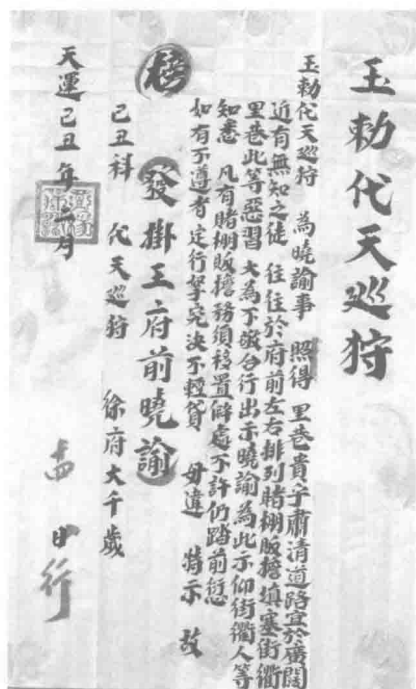 玉勅代天巡狩
玉勅代天巡狩 為曉諭事 照得 里巷貴乎肅清道路宜於廣闊
近有無知之徒 往往於府前左右排列賭棚販擔填塞街衢
里巷此等惡習 大為不敬合行出示曉諭為此示仰街衢人等
知悉 凡有賭棚販擔務須移置僻處不許仍踏前愆
如有不遵者定行拏究決不輕貸 毋違 特示 故
榜 發掛王府前曉諭
己丑科 代天巡狩 徐府大千歲
天運己丑年 月
日行